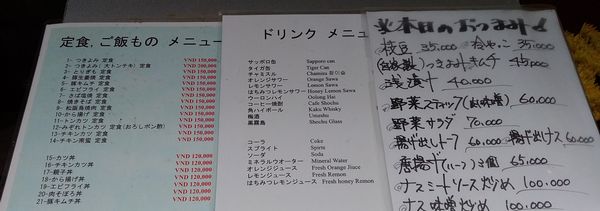 定食、ご飯もの メニュー
1- つきよみ 定食 VND 150,000
2- つきよみ (大トンテキ) 定食 VND 200,000
3- とりぎも 定食 VND 150,000
4- 豚生姜焼 定食 VND 150,000
5- 豚キムチ 定食 VND 150,000
6- エビフライ 定食 VND 150,000
7- さば塩焼 定食 VND 150,000
8- 焼きそば 定食 VND 150,000
9- 松阪島焼肉 定食 VND 150,000
10-から揚げ 定食 VND 150,000
11-トンカツ 定食 VND 150,000
12-みぞれトンカツ 定食 (おろしポン酢) VND 150,000
13-チキンカツ 定食 VND 150,000
14-チキン南蛮 定食 VND 150,000
15-カツ丼 VND 120,000
16-チキンカツ丼 VND 120,000
17-親子丼 VND 120,000
18-から揚げ丼 VND 120,000
19-エビフライ丼 VND 120,000
20-肉そぼろ丼 VND 120,000
21-豚キムチ丼 VND 120,000
ドリンク メニュ
サッポロ缶 Sapporo can
タイガ缶 Tiger Can
チャミスル Chamisu
オレンジサワー Orange Sawa
レモンサワー Lemon Sawa
はちみつレモンサワー Honey Lemon Sawa
ウーロンハイ Oolong Hai
コーヒー焼酎 Cafe Shochu
角ハイボール Kaku Whisky
梅酒 Umeshu
黒霧島 Shochu Glass
コーラ Coke
スプライト Sprite
ソーダ Soda
ミネラルウオーター Mineral Water
オレンジジュース Fresh Orange Juice
レモンジュース Fresh Remon
はちみつレモンジュース Fresh honey Remon
本日のおつまみ
枝豆 35,000 冷やっこ 35,000
(自家製)つきみトキムチ 45,000
浅漬け 40.000
野菜スティック(肉味噌) 60,000
野菜サラダ 70.000
揚げ出しトーフ 60,000 揚げ出しナス 60,000
唐揚げ(ハーフ)3個 65.000
ナスミートソース炒め 100.000
ナス味噌炒め 100.000